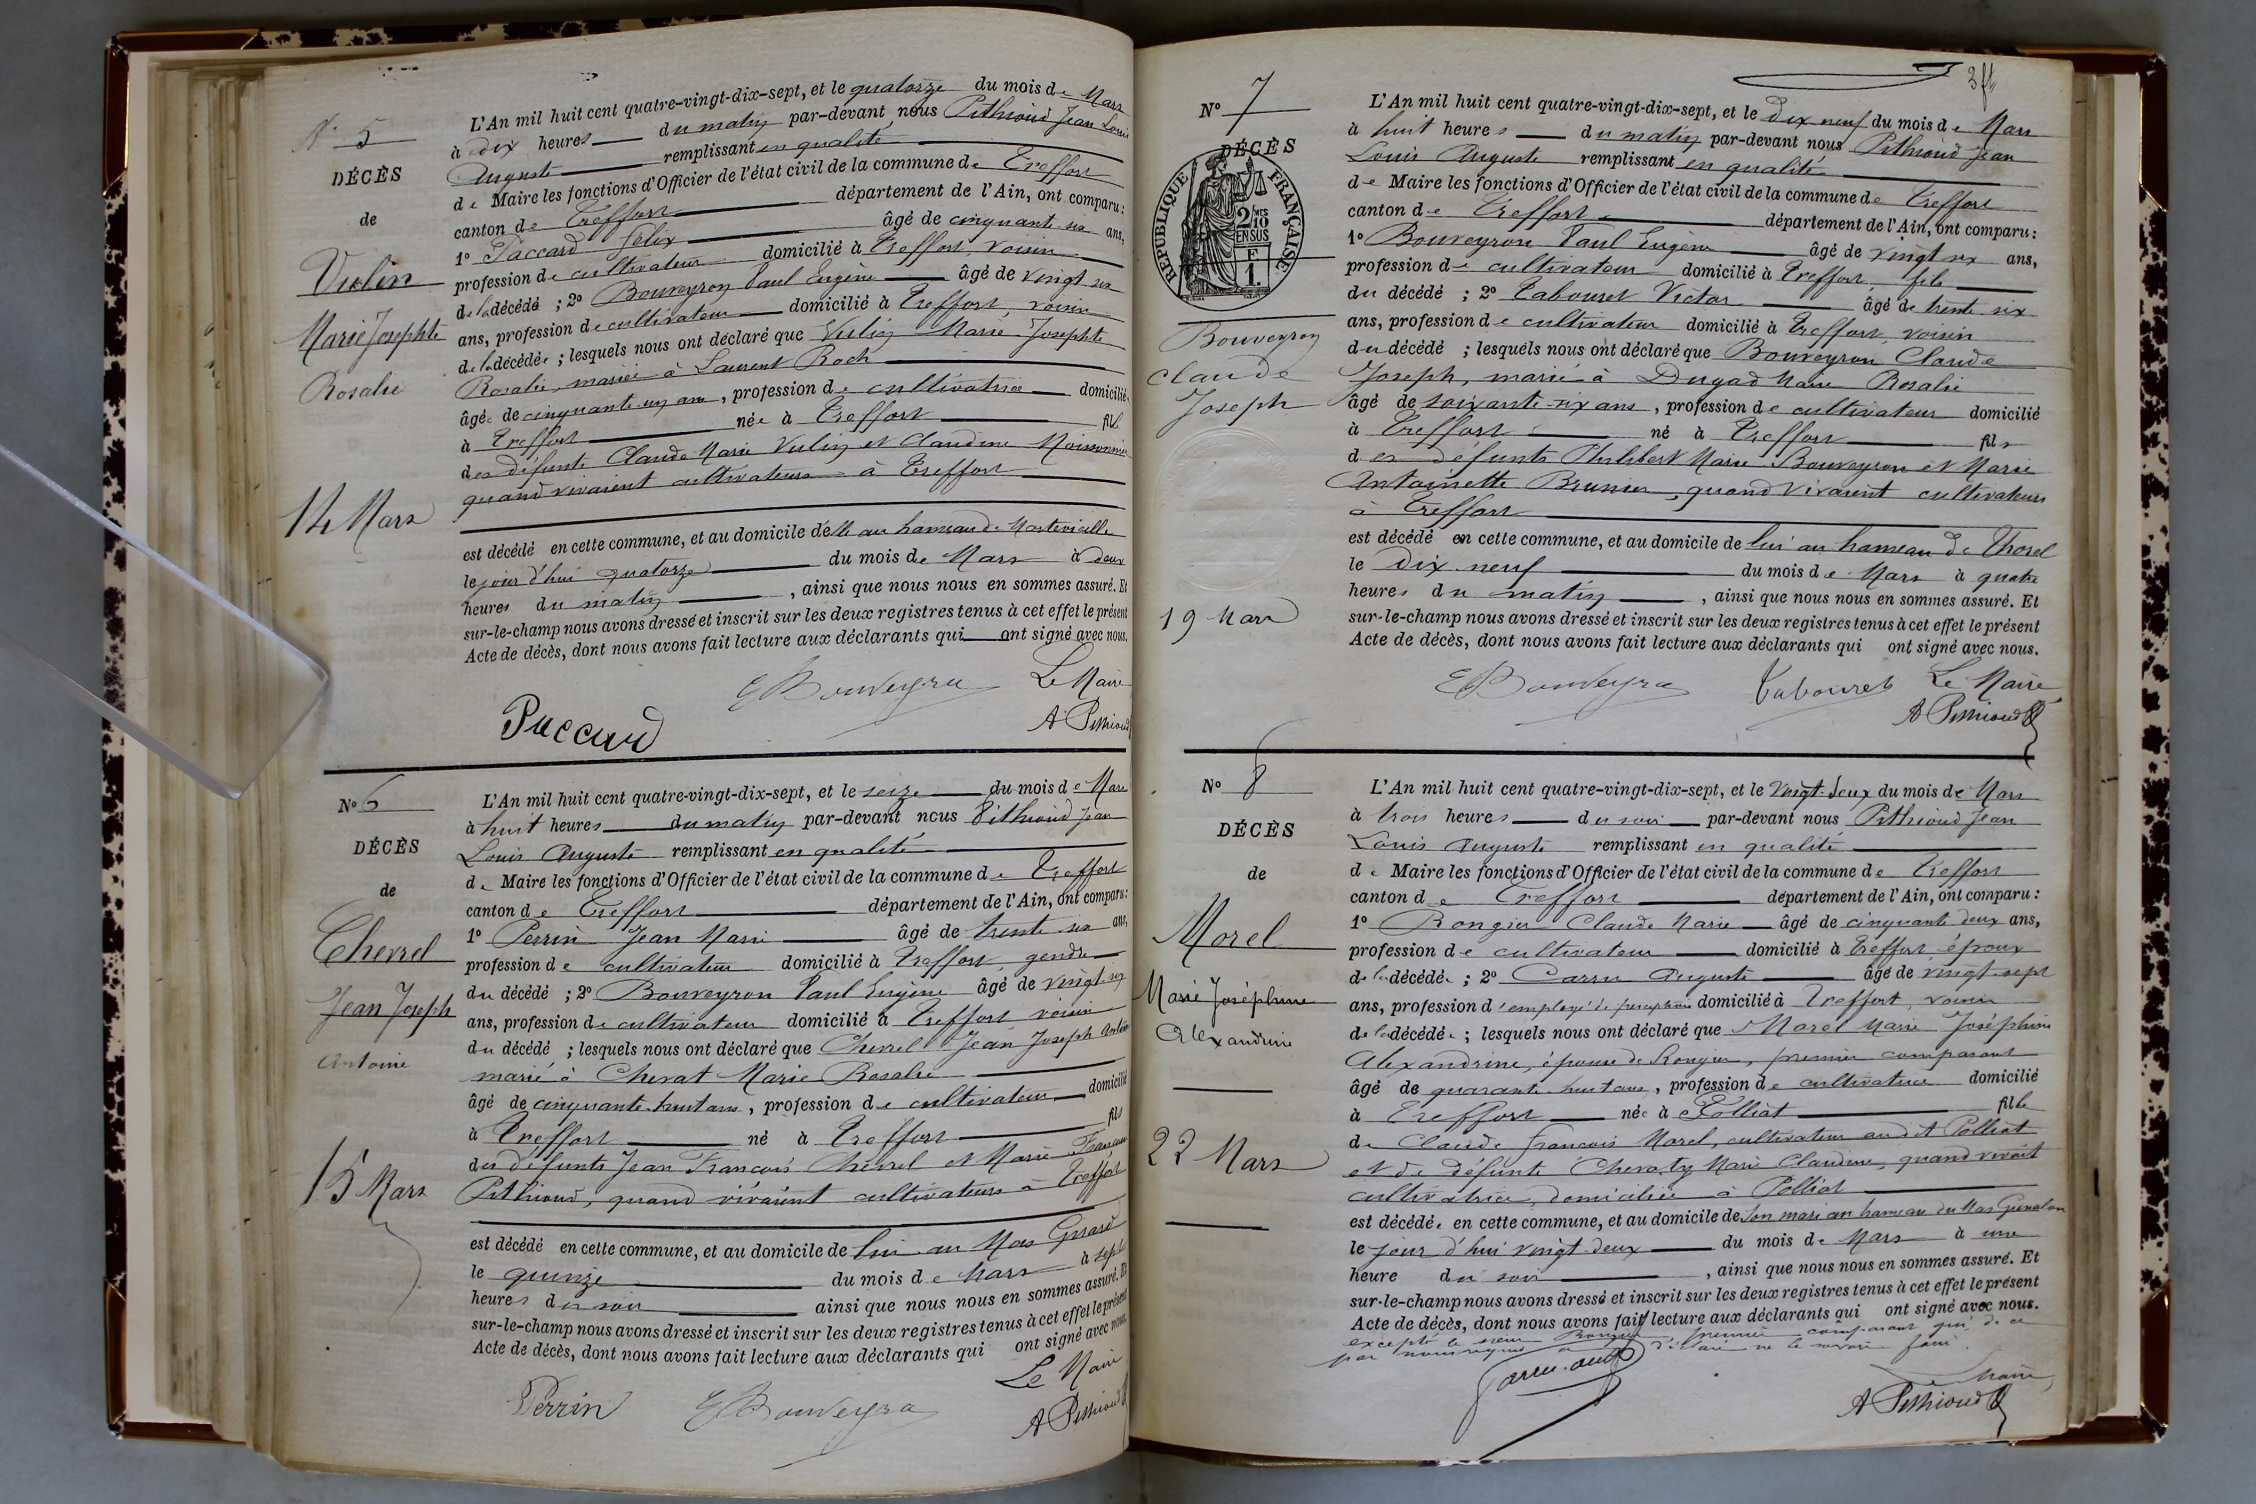 N° 5
DÉCÈS
de
Vulin
Marie Josephte
Rosalie
14 Mars
L'An mil huit cent quatre-vingt-dix-sept, et le quatorze du mois de Mars
à dix heures du matin par-devant nous Pithioud Jean Louis
Auguste remplissant en qualité
de Maire les fonctions d'Officier de l'état civil de la commune de Treffort
canton de Treffort département de l'Ain, ont comparu:
1° Paccard Félix âgé de cinquante six ans,
profession de cultivateur domicilié à Treffort, voisin
de la décédé ; 2° Bouveyron Paul Eugène âgé de vingt six
ans, profession de cultivateur domicilié à Treffort, voisin
de la décédée ; lesquels nous ont déclaré que Vulin Marie Josephte
Rosalie, mariée à Laurent Roch
âgée de cinquante un ans, profession de cultivatrice domiciliée
à Treffort née à Treffort fille
des défunts Claude Marie Vulin et Claudine Moissonnier
quand vivaient cultivateurs à Treffort
est décédé en cette commune, et au domicile d'elle au hameau de Montevieille
le jour d'hui quatorze du mois de Mars à deux
heures du matin, ainsi que nous nous en sommes assuré. Et
sur-le-champ nous avons dressé et inscrit sur les deux registres tenus à cet effet le présent
Acte de décès, dont nous avons fait lecture aux déclarants qui ont signé avec nous.
Le Maire
E Bouveyron
Paccard
A Pithioud
N° 6
DÉCÈS
de
Chevrel
Jean Joseph
Antoine
15 Mars
L'An mil huit cent quatre-vingt-dix-sept, et le seize du mois de Mars
à huit heures du matin par-devant nous Pithioud Jean
Louis Auguste remplissant en qualité
de Maire les fonctions d'Officier de l'état civil de la commune de Treffort
canton de Treffort département de l'Ain, ont comparu:
1° Perrin Jean Marie âgé de trente six ans,
profession de cultivateur domicilié à Treffort gendre
du décédé ; 2° Bouveyron Paul Eugène âgé de vingt six
ans, profession de cultivateur domicilié à Treffort voisin
du décédé ; lesquels nous ont déclaré que Chevrel Jean Joseph Antoine
marié à Chevat Marie Rosalie
âgé de cinquante-huit ans, profession de cultivateur domicilié
à Treffort né à Treffort fils
des défunts Jean François Chevrel et Marie Françoise
Pithioud, quand vivaient cultivateurs à Treffort
est décédé en cette commune, et au domicile de lui au Mas Girard
le quinze du mois de Mars à sept
heures du soir ainsi que nous nous en sommes assuré. Et
sur-le-champ nous avons dressé et inscrit sur les deux registres tenus à cet effet le présent
Acte de décès, dont nous avons fait lecture aux déclarants qui ont signé avec nous.
Le Maire
Perrin E Bouveyron A Pithioud
N° 7
DÉCÈS
RÉPUBLIQUE FRANÇAISE
2/10 MES
EN SUS
F
1.
Bouveyron
Claude
Joseph
19 Mars
L'An mil huit cent quatre-vingt-dix-sept, et le dix neuf du mois de Mars
à huit heures du matin par-devant nous Pithioud Jean
Louis Auguste remplissant en qualité
de Maire les fonctions d'Officier de l'état civil de la commune de Treffort
canton de Treffort département de l'Ain, ont comparu:
1° Bouveyron Paul Eugène âgé de vingt six ans,
profession de cultivateur domicilié à Treffort, fils
du décédé ; 2° Tabouret Victor âgé de trente six
ans, profession de cultivateur domicilié à Treffort, voisin
du décédé ; lesquels nous ont déclaré que Bouveyron Claude
Joseph, marié à Dugad Marie Rosalie
âgé de soixante-six ans, profession de cultivateur domicilié
à Treffort né à Treffort fils
des défunts Philibert Marie Bouveyron et Marie
Antoinette Brunier, quand vivaient cultivateurs
à Treffort
est décédé en cette commune, et au domicile de lui au hameau de Thorel
le dix neuf du mois de Mars à quatre
heures du matin, ainsi que nous nous en sommes assuré. Et
sur-le-champ nous avons dressé et inscrit sur les deux registres tenus à cet effet le présent
Acte de décès, dont nous avons fait lecture aux déclarants qui ont signé avec nous.
E Bouveyron Tabouret Le Maire
A Pithioud
N° 8
DÉCÈS
de
Morel
Marie Joséphine
Alexandrine
22 Mars
L'An mil huit cent quatre-vingt-dix-sept, et le vingt-deux du mois de Mars
à trois heures du soir par-devant nous Pithioud Jean
Louis Auguste remplissant en qualité
de Maire les fonctions d'Officier de l'état civil de la commune de Treffort
canton de Treffort département de l'Ain, ont comparu:
1° Rongier Claude Marie âgé de cinquante deux ans,
profession de cultivateur domicilié à Treffort époux
de la décédée ; 2° Carru Auguste âgé de vingt-sept
ans, profession d'employé de perception domicilié à Treffort, voisin
de la décédée ; lesquels nous ont déclaré que Morel Marie Joséphine
Alexandrine, épouse de Rongier, premier comparant
âgé de quarante-huit ans, profession de cultivatrice domicilié
à Treffort née à Polliat fille
de Claude François Morel, cultivateur audit Polliat
et de défunte Chevaty Marie Claudine, quand vivait
cultivatrice, domiciliée à Polliat
est décédée en cette commune, et au domicile de son mari au hameau du Mas
le jour d'hui vingt-deux du mois de Mars à une
heure du soir, ainsi que nous nous en sommes assuré. Et
sur-le-champ nous avons dressé et inscrit sur les deux registres tenus à cet effet le présent
Acte de décès, dont nous avons fait lecture aux déclarants qui ont signé avec nous.
excepté le sieur Rongier, premier comparant qui de ce
par nous requis a déclaré ne le savoir faire.
Carru Aug
Le Maire,
A Pithioud